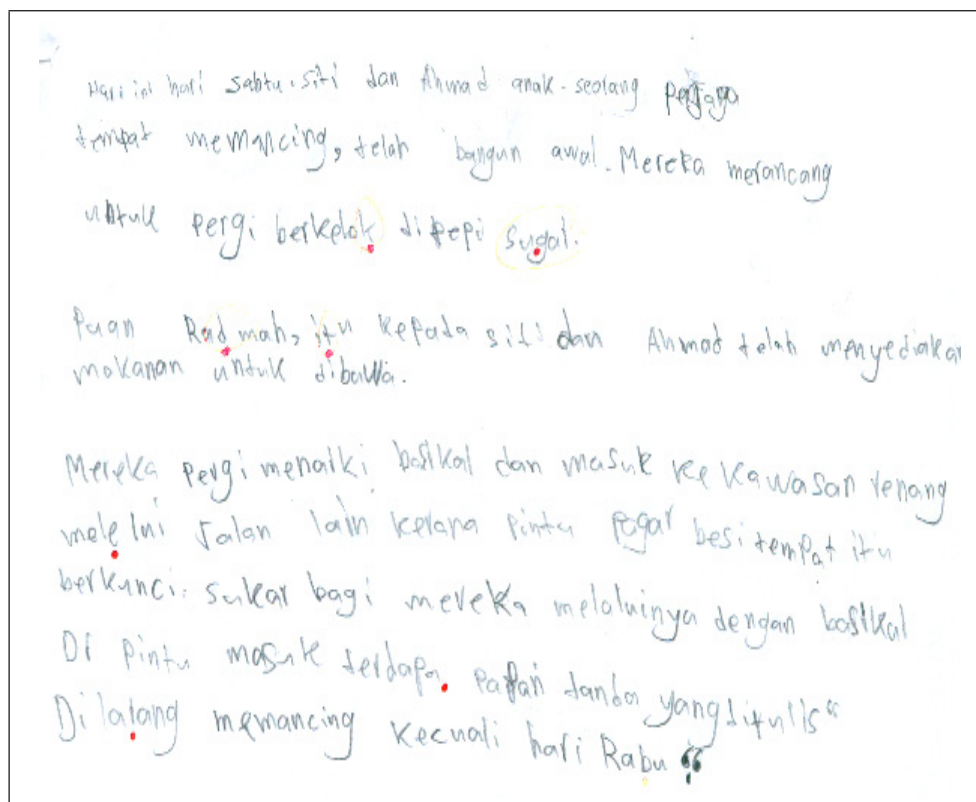 Hari ini hari sabtu. siti dan Ahmad anak seorang penjaga
tempat memancing, telah bangun awal. Mereka merancang
untuk pergi berkelok ditepi sugai.
Puan Radmah, itu kepada siti dan Ahmad telah menyediakan
makanan untuk dibawa.
Mereka pergi menaiki basikal dan masuk ke kawasan renang
melelui Jalan lain kerana pintu pagar besi tempat itu
berkunci. sukar bagi mereka melaluinya dengan basikal
Di pintu masuk terdapa papan tanda yang ditulis “
Dilalang memancing kecuali hari Rabu “